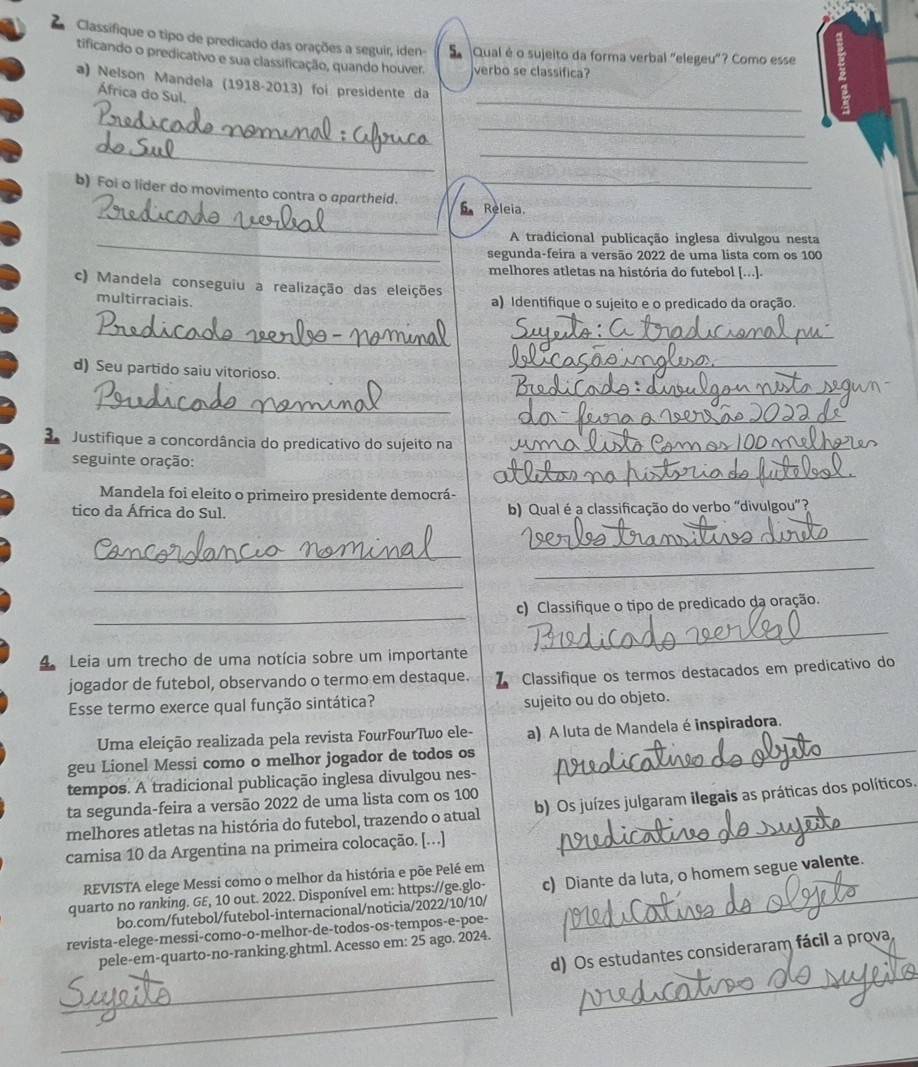 2. Classifique o tipo de predicado das orações a seguir, iden-
tificando o predicativo e sua classificação, quando houver.
a) Nelson Mandela (1918-2013) foi presidente da
África do Sul.
Predicado nominal: africa
do Sul
b) Foi o líder do movimento contra o apartheid.
Predicado verbal
c) Mandela conseguiu a realização das eleições
multirraciais.
Predicado verbo-nominal
d) Seu partido saiu vitorioso.
Predicado nominal
3. Justifique a concordância do predicativo do sujeito na
seguinte oração:
Mandela foi eleito o primeiro presidente democrá-
tico da África do Sul.
Concordancia nominal
4. Leia um trecho de uma notícia sobre um importante
jogador de futebol, observando o termo em destaque.
Esse termo exerce qual função sintática?
Uma eleição realizada pela revista FourFourTwo ele-
geu Lionel Messi como o melhor jogador de todos os
tempos. A tradicional publicação inglesa divulgou nes-
ta segunda-feira a versão 2022 de uma lista com os 100
melhores atletas na história do futebol, trazendo o atual
camisa 10 da Argentina na primeira colocação. [...]
REVISTA elege Messi como o melhor da história e põe Pelé em
quarto no ranking. GE, 10 out. 2022. Disponível em: https://ge.glo-
bo.com/futebol/futebol-internacional/noticia/2022/10/10/
revista-elege-messi-como-o-melhor-de-todos-os-tempos-e-poe-
pele-em-quarto-no-ranking.ghtml. Acesso em: 25 ago. 2024.
Sujeito
5. Qual é o sujeito da forma verbal "elegeu"? Como esse
verbo se classifica?
6. Releia.
A tradicional publicação inglesa divulgou nesta
segunda-feira a versão 2022 de uma lista com os 100
melhores atletas na história do futebol [...].
a) Identifique o sujeito e o predicado da oração.
Sujeito: a tradicional pu-
blicasão inglesa.
Predicado: divulgou nesta segun-
da-feira a versão 2022 de
uma lista com os 100 melhores
atletas na história do futebol.
b) Qual é a classificação do verbo "divulgou"?
verbo transitivo direto
c) Classifique o tipo de predicado da oração.
Predicado verbal
7. Classifique os termos destacados em predicativo do
sujeito ou do objeto.
a) A luta de Mandela é inspiradora.
predicativo do objeto
b) Os juízes julgaram ilegais as práticas dos políticos.
predicativo do sujeito
c) Diante da luta, o homem segue valente.
predicativo do objeto
d) Os estudantes consideraram fácil a prova.
predicativo do sujeito
Língua Portuguesa